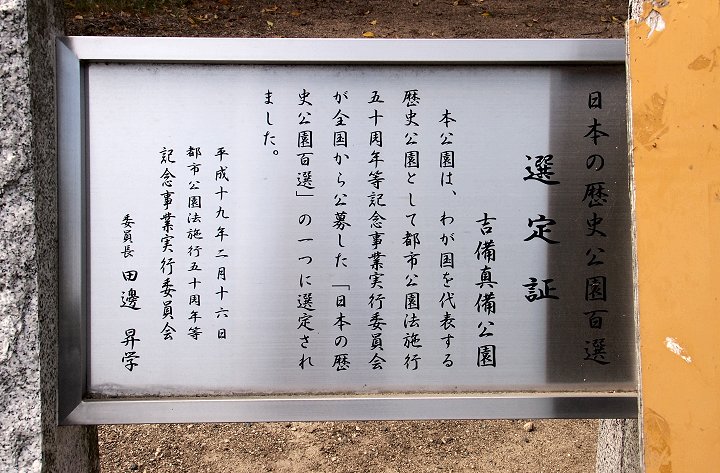 日本の歴史公園百選
選定証
吉備真備公園
本公園は、わが国を代表する
歴史公園として都市公園法施行
五十周年等記念事業実行委員会
が全国から公募した「日本の歴
史公園百選」の一つに選定され
ました。
平成十九年二月十六日
都市公園法施行五十周年等
記念事業実行委員会
委員長 田邊 昇学